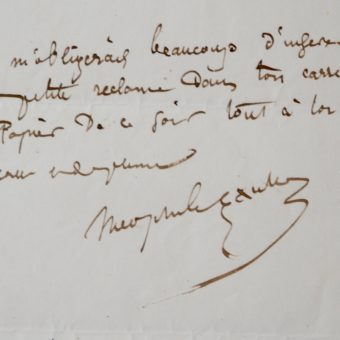 m'obligerais beaucoup d'inserer
petite reclame dans ton carré
Papier de ce soir tout à toi
cœur et de plume
Theophile Gautier